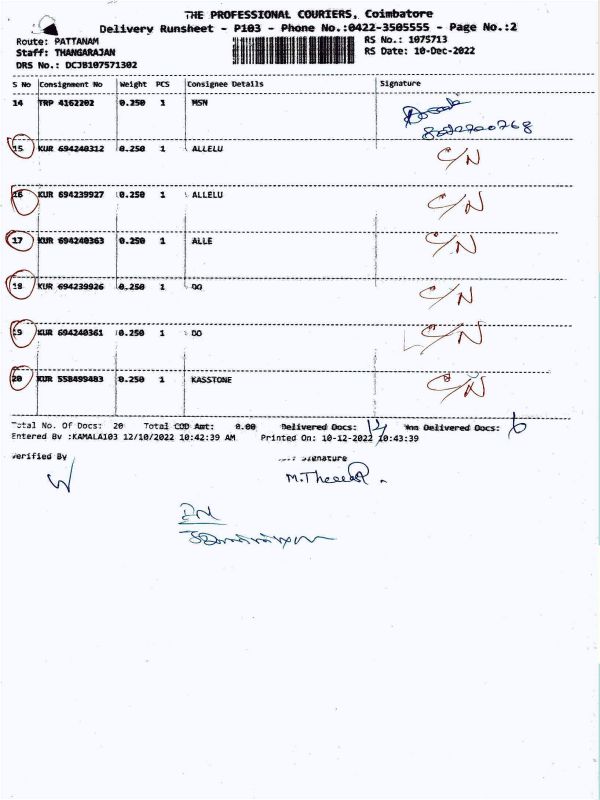 THE PROFESSIONAL COURIERS, Coimbatore
Delivery Runsheet - P103 - Phone No.:0422-3505555 - Page No.:2
Route: PATTANAM
RS No.: 1075713
Staff: THANGARAJAN
RS Date: 10-Dec-2022
DRS No.: DCJB107571302
S No Consignment No Weight PCS Consignee Details Signature
14 TRP 4162202 0.250 1 MSN
15 KUR 694240312 0.250 1 ALLELU C/N
16 KUR 694239927 0.250 1 ALLELU C/N
17 KUR 694240363 0.250 1 ALLE C/N
18 KUR 694239926 0.250 1 DO C/N
19 KUR 694240361 0.250 1 DO C/N
20 KUR 558499483 0.250 1 KASSTONE C/N
Total No. Of Docs: 20 Total COD Amt: 0.00 Delivered Docs: 14 Delivered Docs: 6
Entered By :KAMALA103 12/10/2022 10:42:39 AM Printed On: 10-12-2022 10:43:39
Verified By Signature